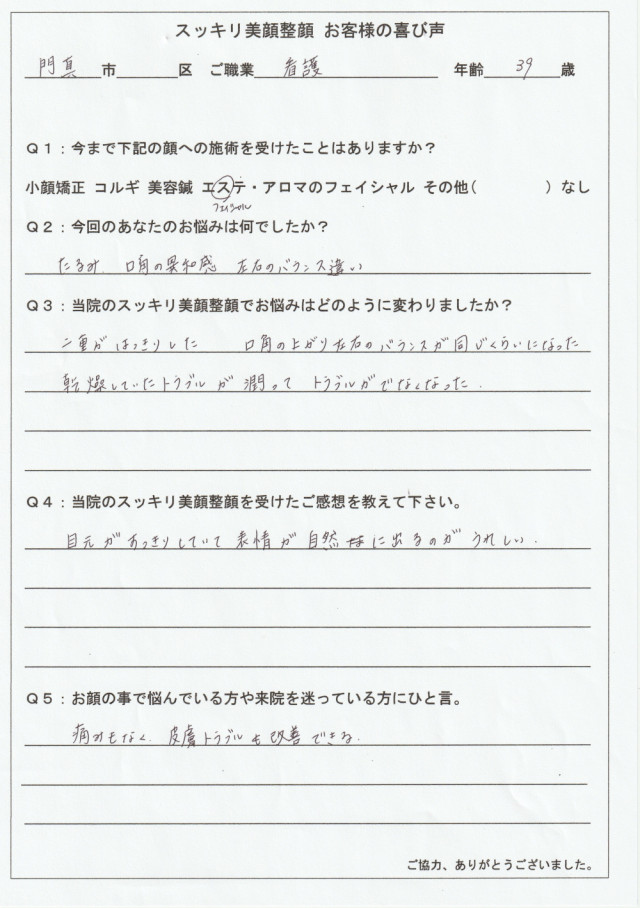 スッキリ美顔整顔 お客様の喜び声
門真 市 区 ご職業 看護 年齢 39 歳
Q1：今まで下記の顔への施術を受けたことはありますか？
小顔矯正 コルギ 美容鍼 エステ・アロマのフェイシャル その他( ) なし
フェイシャル
Q2：今回のあなたのお悩みは何でしたか？
たるみ、口角の異和感 左右のバランス違い
Q3：当院のスッキリ美顔整顔でお悩みはどのように変わりましたか？
二重がはっきりした 口角の上がり左右のバランスが同じくらいになった
乾燥していたトラブルが潤って トラブルがでなくなった.
Q4：当院のスッキリ美顔整顔を受けたご感想を教えて下さい。
目元がすっきりしていて表情が自然に出るのがうれしい.
Q5：お顔の事で悩んでいる方や来院を迷っている方にひと言。
痛みもなく、皮膚トラブルも改善できる.
ご協力、ありがとうございました。